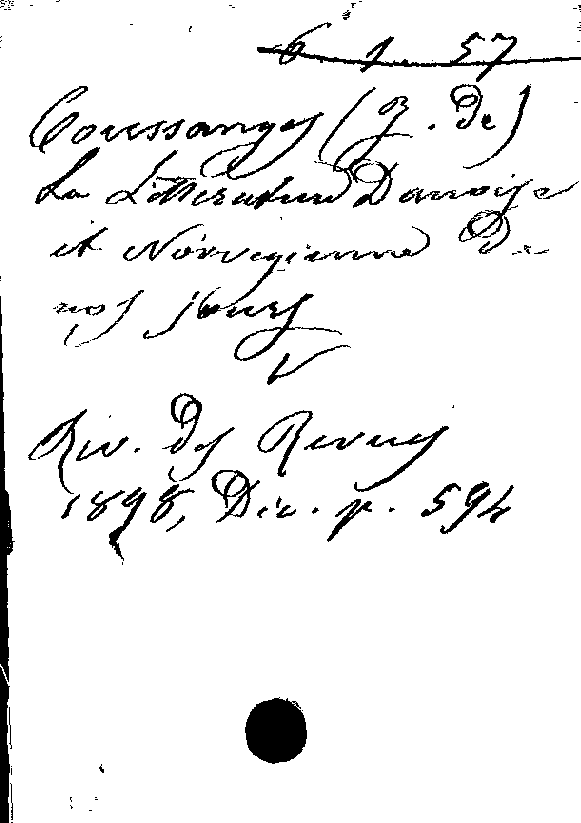 6 1. 57
Coussanges (J. De)
La Litterature Danoise
et Norvegienne De
nos jours
V
Rev. Des Revues
1898, Dec. p. 594